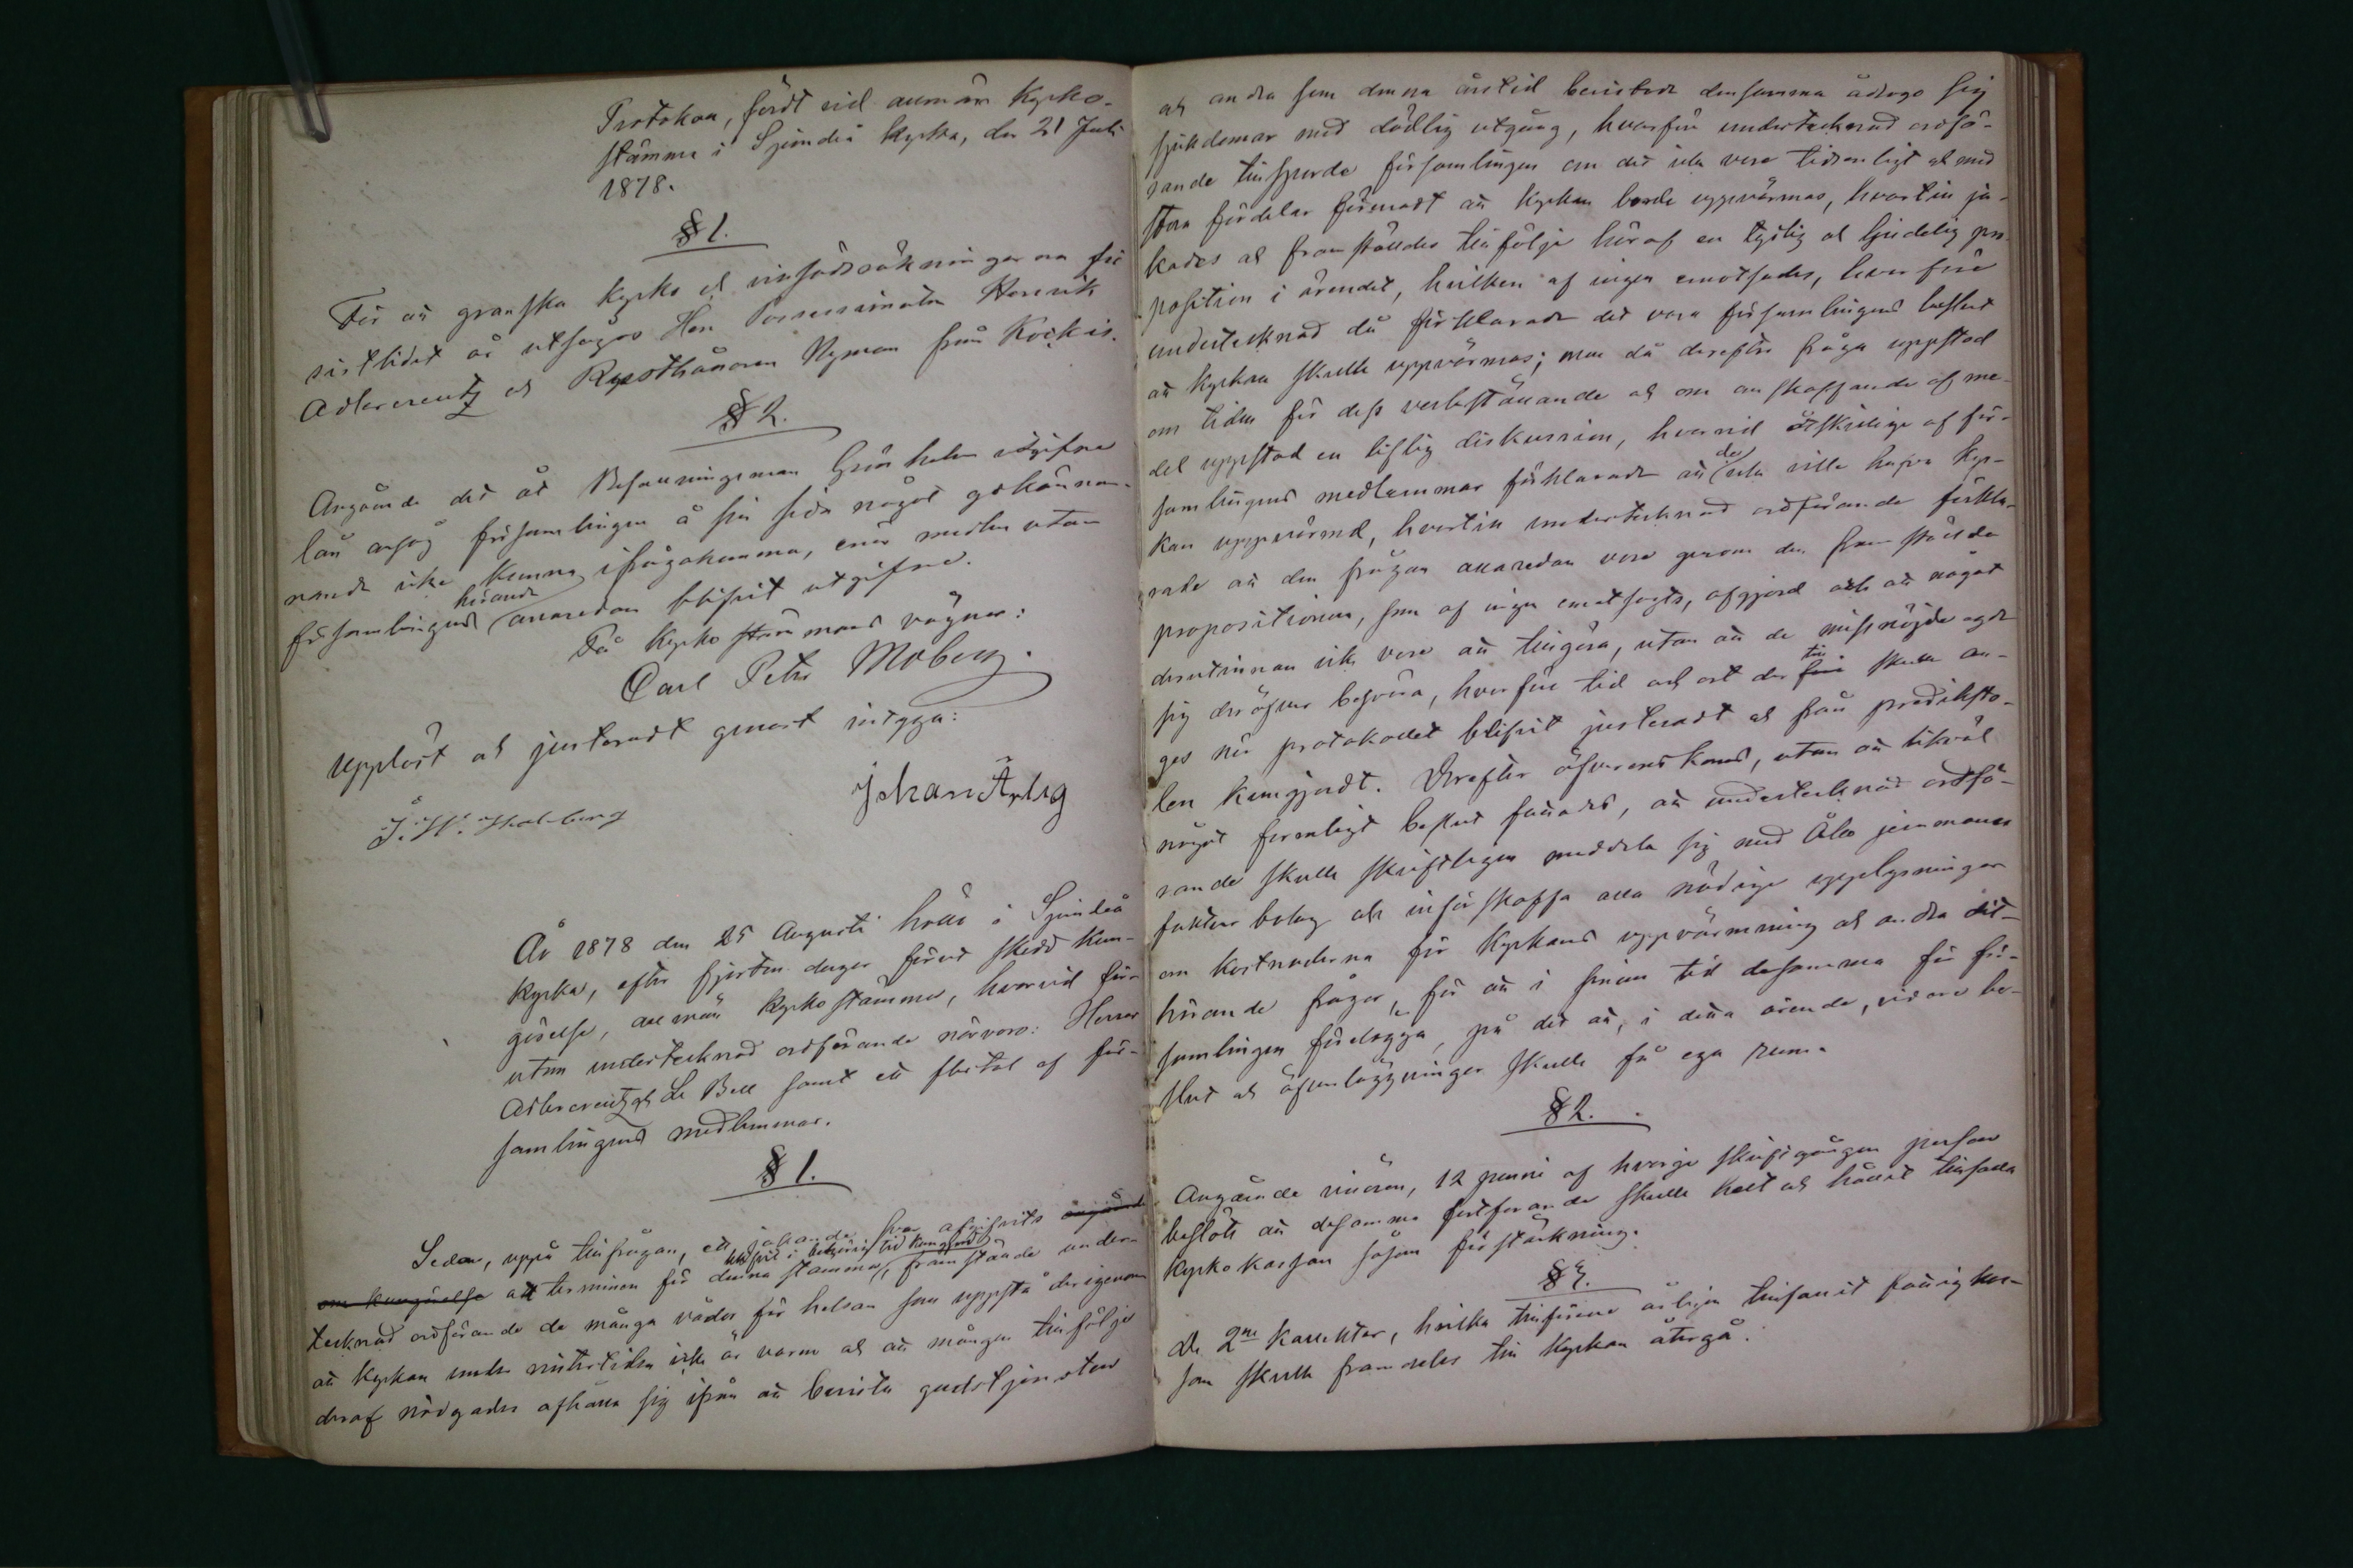 Protokoll, fördt vid allmän Kyrko-
stämma i Sjundeå Kyrka, den 21 Juli
1878.
§ 1.
För att granska Kyrko och räkningarna för
sistlidet år utsågos Herr Possessionaten Henrik
Adlercreutz och Rusthållaren Nyman från Kockis.
§ 2.
Angående det åt Befallningsman Grönholm utgifne
lån ansåg församlingen å sin sida något godkännan-
nande icke kunna ifrågakomma, enär medlen utan
församlingens hörande allaredan blifvit utgifne.
På Kyrkostämmans vägnar:
Carl Petr Moberg.
Uppläst och justeradt genast intyga:
Johan Ärlig
J. W. Malmberg
År 1878 den 25 Augusti hölls i Sjundeå
Kyrka, efter fjorton dagar förut skedd kun-
görelse, allmän Kyrkostämma, hvarvid för-
utom undertecknad ordförande närvoro: Herrar
Adlercreutz och Le Bell samt ett flertal af för-
samlingens medlemmar.
§ 1.
Sedan, uppå tillfrågan, ett jakande svar afgifvits angående
om kungörelse att terminen för denna stämma blifvit i behörig tid kungjord, framstälde under-
tecknad ordförande de många vådor för helsan som uppstå derigenom
att Kyrkan under vintertiden icke är varm och att mången till följe
deraf nödgades afhålla sig ifrån att bevista gudstjensten
och andra som denna årstid bevistade densamma ådrogo sig
sjukdomar med dödlig utgång, hvarföre undertecknad ordfö-
rande tillsporde församlingen om det icke vore tidsenligt och med
stora fördelar förenadt att Kyrkan borde uppvärmas, hvartill ja-
kades och framställdes till följe häraf en tydlig och ljudelig pro-
position i ärendet, hvilken af ingen emotsades, hvarföre
undertecknad då förklarade det vara församlingens beslut
att Kyrkan skulle uppvärmas; men då derefter fråga uppstod
om tiden för dess verkställande och om anskaffande af me-
del uppstod en liflig diskussion, hvarvid åtskillige af för-
samlingens medlemmar förklarade att de icke ville hafva Kyr-
kan uppvärmd, hvartill undertecknad ordförande förkla-
rade att den frågan allaredan vore genom den framställda
propositionen, som af ingen emotsagts, afgjord och att något
derutinnan icke vore att tillgöra, utan att de missnöjde egde
sig deröfver besvära, hvarföre tid och ort der till skulle an-
ges när protokollet blifvit justeradt och från prediksto-
len kungjordt. Derefter öfverenskoms, utan att likväl
något formligt beslut fattades, att undertecknad ordfö-
rande skulle skriftligen meddela sig med Åbo jernmanu-
faktur bolag och införskaffa alla nödiga upplysningar
om kostnaderna för Kyrkans uppvärmning och andra dit-
hörande frågor, för att i sinom tid desamma för för-
samlingen förelägga, på det att, i detta ärende, vidare be-
slut och öfverläggningar skulle få ega rum.
§ 2.
Angående vinören, 12 penni af hvarje skriftgången person
beslöts att desamma fortfarande skulle helt och hållet tillfalla
Kyrkokassan såsom förstärkning.
§ 3.
De 2ne Kollekter, hvilka tillförene årligen tillfallit fattigkas-
san skulle framdeles till Kyrkan återgå.